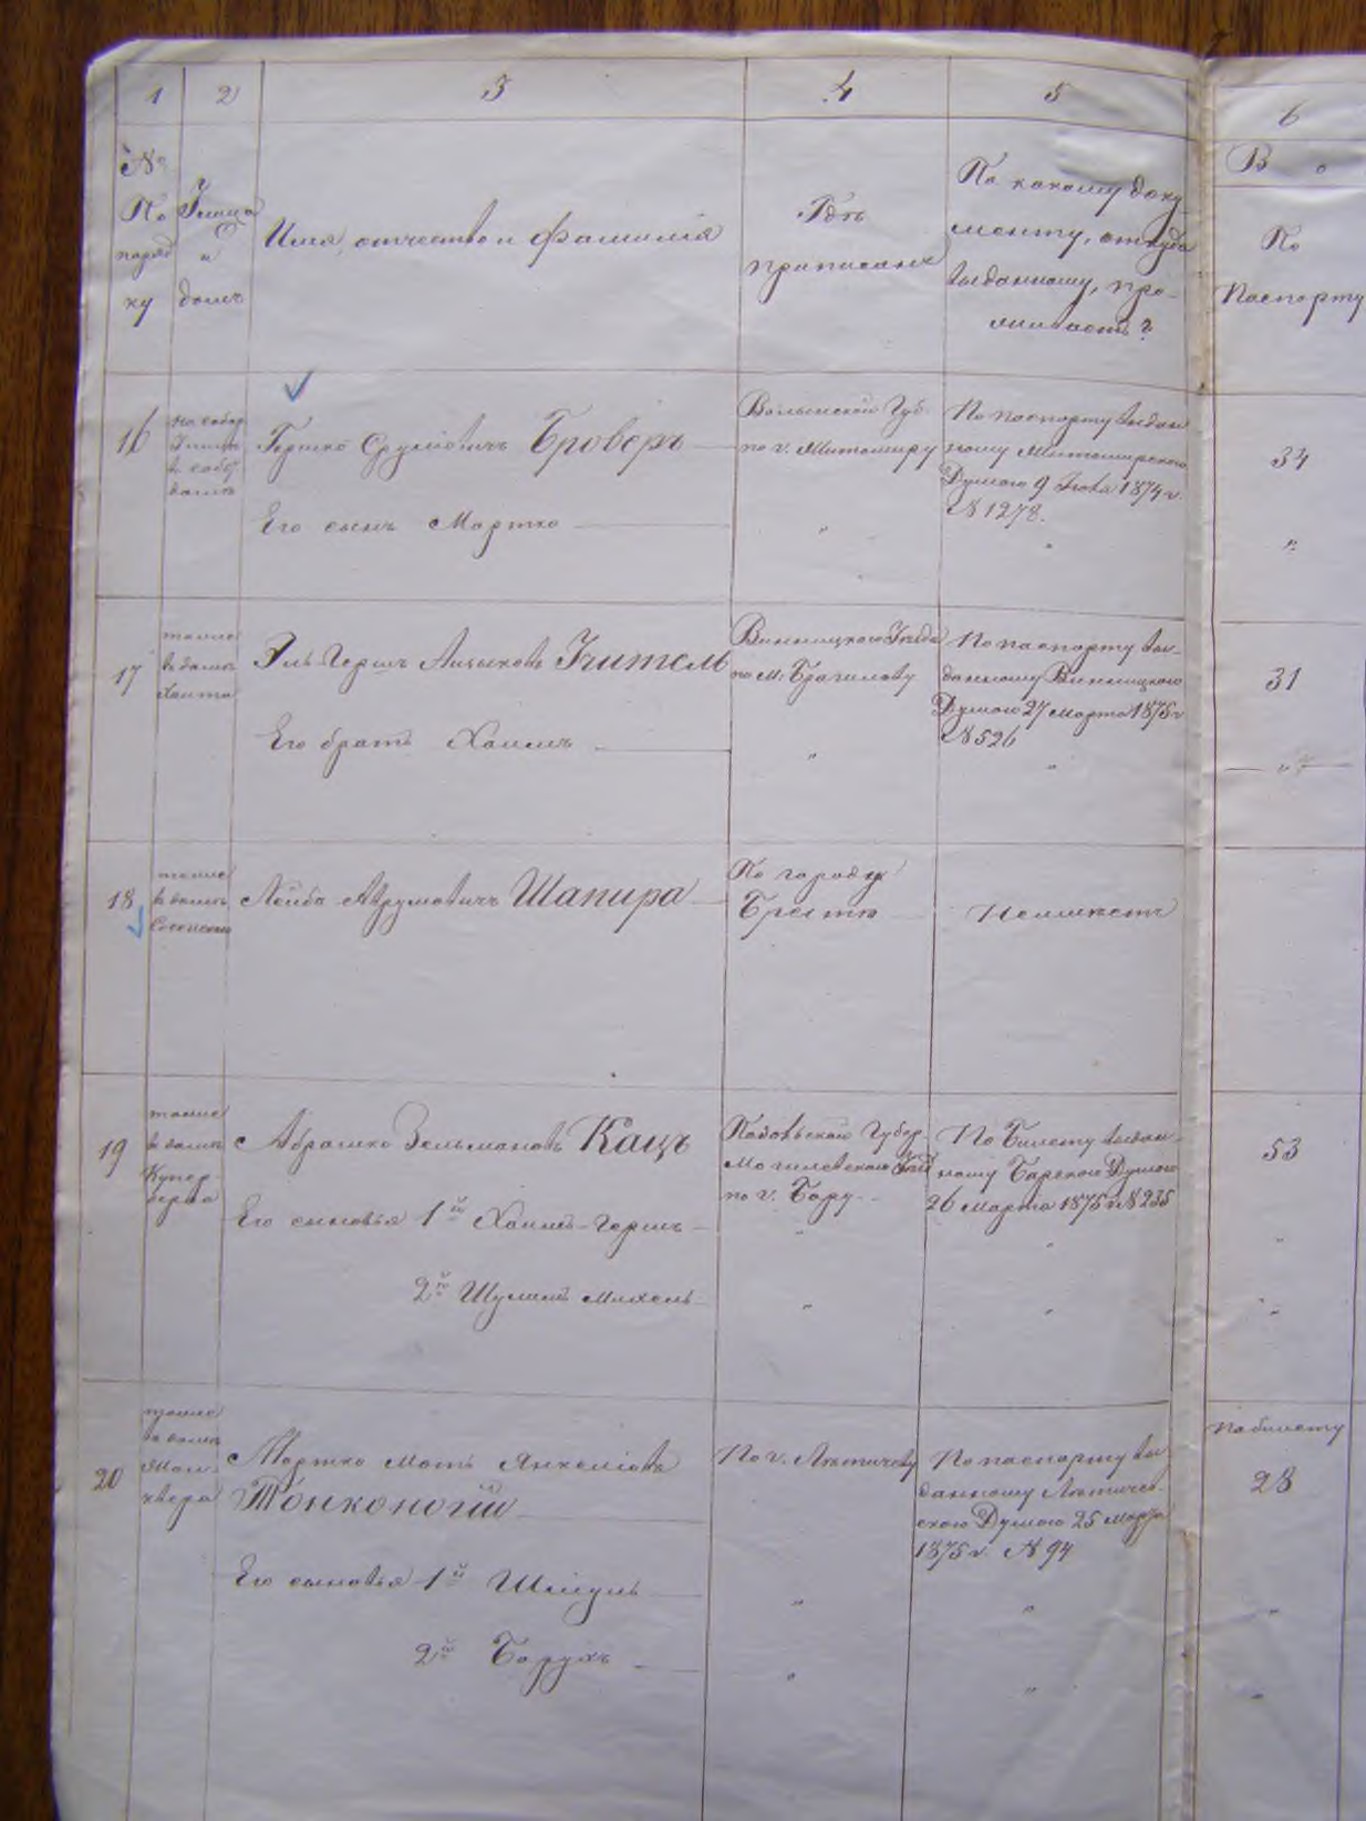 1 2 3 4 5 6
№ По поряд ку
Улица и домъ
Имя, отчество и фамилія
Гдѣ
приписанъ
По какому доку-
менту, откуда
выданному, про-
живаетъ?
В о
По
Паспорту
16
На собор.
Улицѣ
въ собс.
домѣ
Гершко Сруліовичъ Броверъ
Волынской Губ.
по г. Житомиру
По паспорту выдан
ному Житомирскою
Думою 9 1874 г.
№ 1278.
34
Его сынъ Мортко
"
"
"
17
тоже
въ домѣ
Хаита
Эль-Гершъ Лизыковъ Учитель
Винницкаго Уѣзда
по м. Браилову
По паспорту вы-
данному Винницкою
Думою 27 Марта 1875 г
№ 526
31
Его братъ Хаимъ
"
"
"
18
тоже
въ домѣ
Лейба Аврумовичъ Шапира
По городу
Бресту
Неимѣетъ
19
тоже
въ домѣ
Купер-
берга
Абрашко Зельмановъ Кацъ
Подольской Губер-
Могилевскаго Уѣз
по г. Бару
По Билету выдан-
ному Барскою Думою
26 Марта 1875 г. № 235
53
Его сыновья 1й Хаимъ-Гершъ
"
"
"
2й Шулимъ Михель
"
"
"
20
тоже
въ домѣ
Мортко Моть Янкеліовъ
Тонконогій
По г. Летичеву
По паспорту вы
данному Летичев-
скою Думою 25 Марта
1875 г. № 94
По билету
28
Его сыновья 1й Шмуль
"
"
"
2й Борухъ
"
"
"